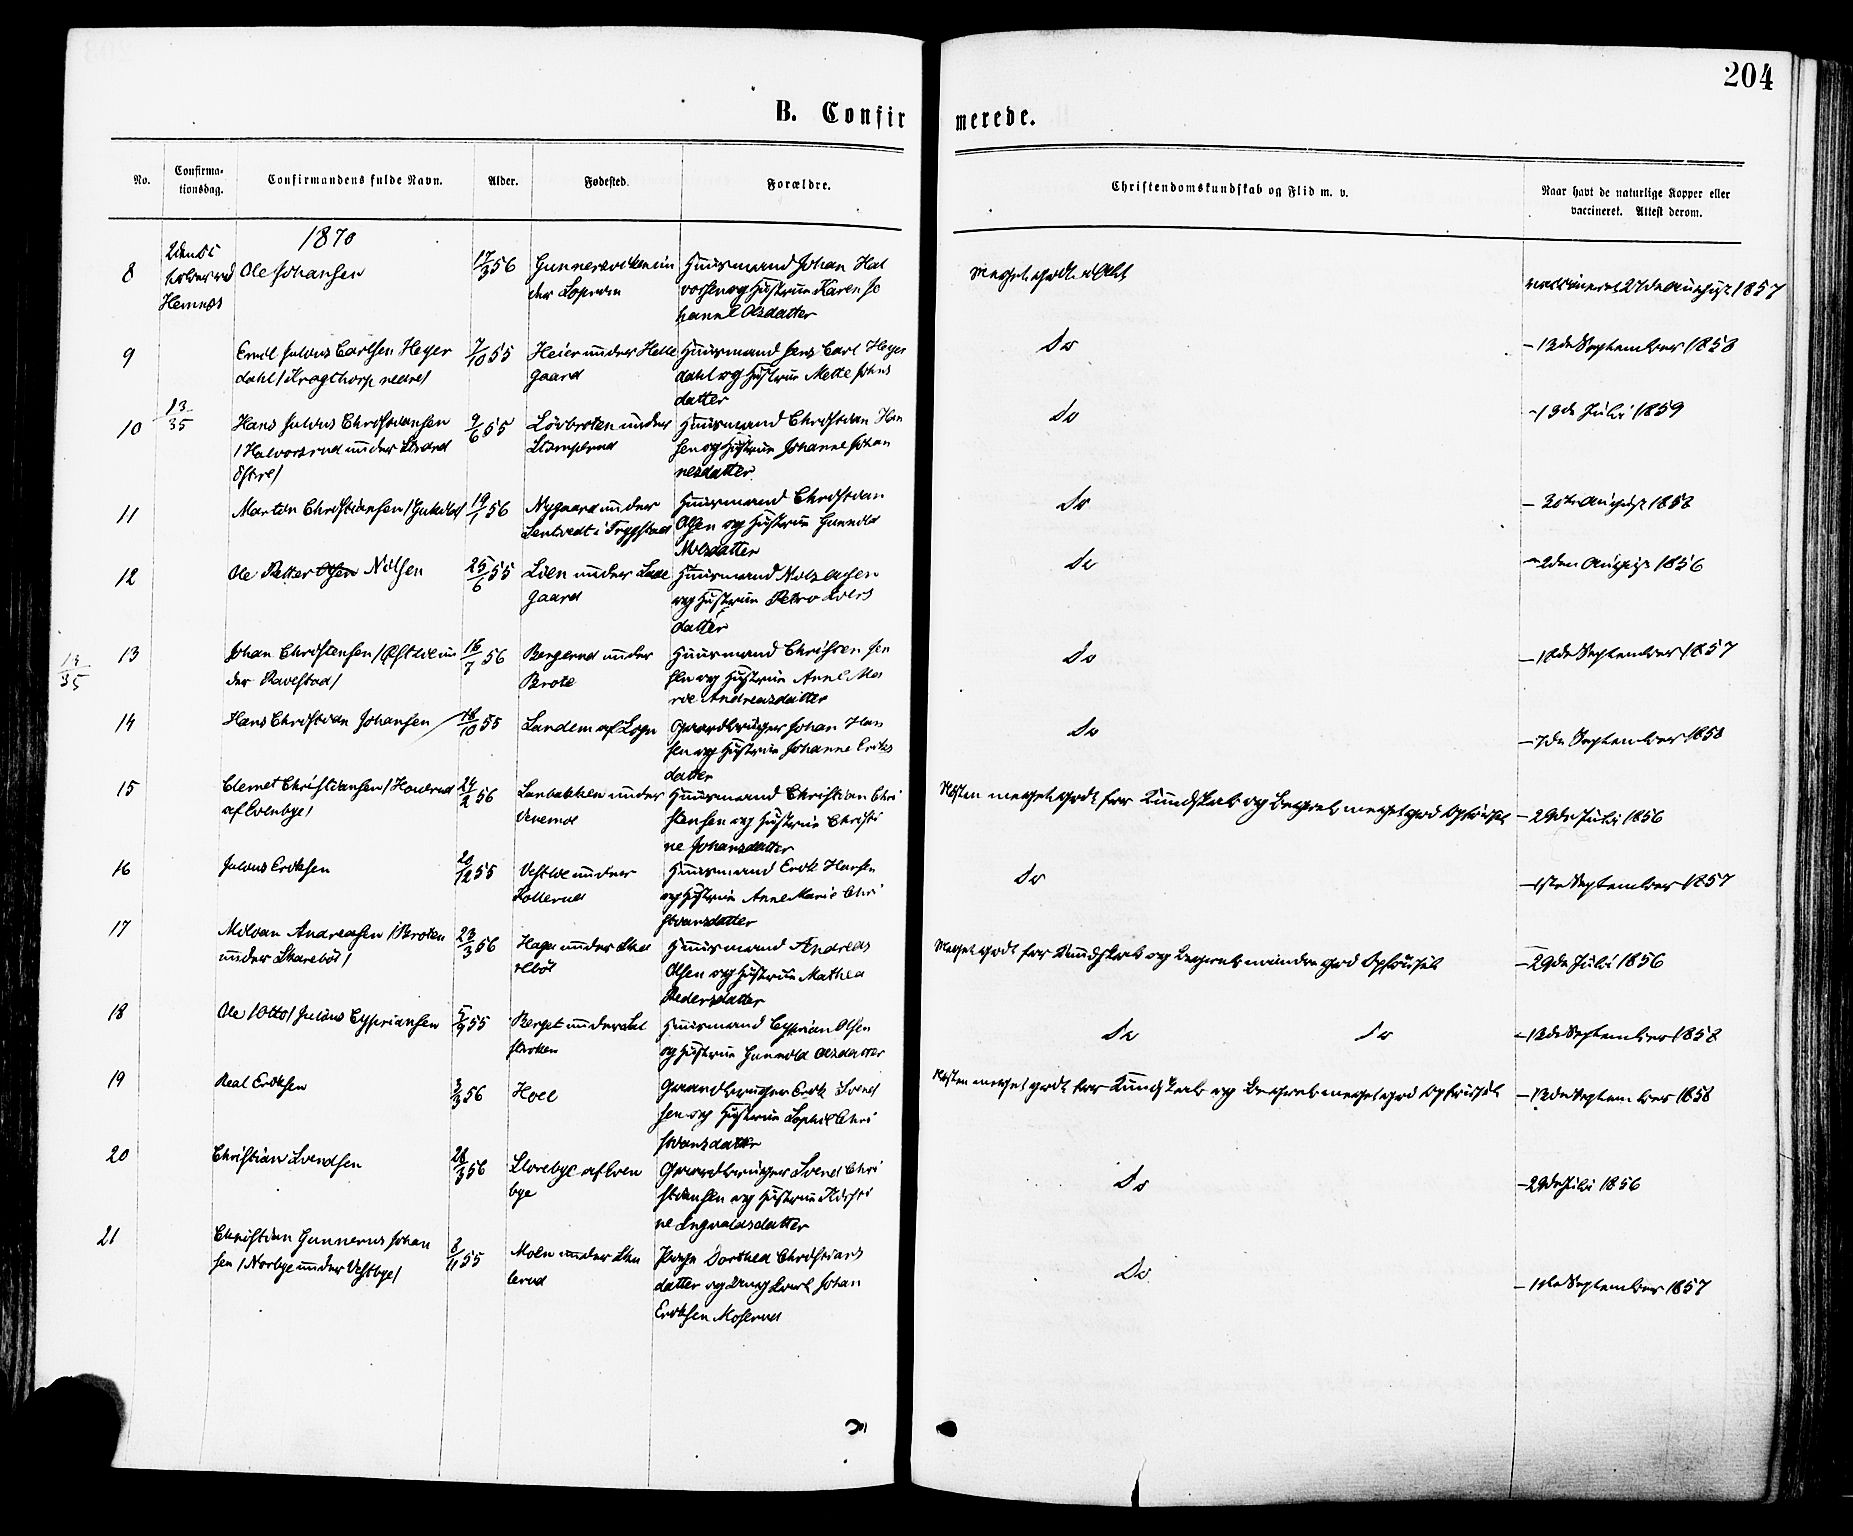 204
B. Confir merede.
No. Confirma- tionsdag. Confirmandens fulde Navn. Alder. Fødested. Forældre. Christendomskundskab og Flid m. v. Naar havt de naturlige Kopper eller vaccineret. Attest derom.
1870
8 2den Oc Hemnes Ole Johansen 17/3 56 Huusmand Johan Hal
vorsen og Hustrue Karen Jo
hanne Olsdatter
Meget godt i Alt
vaccineret 27de August 1857
9 Emil Julius Carlsen Heyer
dahl /Kragthorp nedre/
7/10 55 Heier under Helle
gaard
Huusmand Jens Carl Heyer
dahl og Hustrue Mette Johns
datter
Do
— 12de September 1858
13/35
10 Hans Julius Christiansen
/Halvorsrud under
Østre/
9/6 55 Lövbroten under
Huusmand Christian Han
sen og Hustrue Johanne Johan
nesdatter
Do
— 19de Juli 1859
11 Martin Christiansen
19/1 56 Nygaard under
i Trygstad
Huusmand Christian
Olsen og Hustrue Gunild
Nilsdatter
Do
— 30te August 1858
12 Ole Petter Olsen Nilsen
25/6 55 Lien under
gaard
Huusmand Nils Olsen
og Hustrue
datter
Do
— 2den August 1856
13/35
13 Johan Christensen /Østlie un
der Ravestad/
16/7 56 Bergerud under
Brote
Huusmand Christen Jen
sen og Hustrue Anne Ma
rie Andreasdatter
Do
— September 1857
14 Hans Christian Johansen
18/10 55 Sandem af
Gaardbruger Johan Han
sen og Hustrue Johanne Eriks
datter
Do
— 7de September 1858
15 Clemet Christiansen
af Evenbye/
24/2 56 under
Huusmand Christian Chri
stensen og Hustrue Christi
ne Johansdatter
Næsten meget godt for Kundskab og Begreb meget god Opførsel
— 29de Juli 1856
16 Julius Eriksen
20/12 55 Vestlie under
Huusmand Erik Hansen
og Hustrue Anne Marie Chri
stiansdatter
Do
— 1ste September 1857
17 Milian Andreasen /Broten
under Skarebøl/
23/3 56 Haga under Ska
rebøl
Huusmand Andreas
Olsen og Hustrue Mathea
Pedersdatter
Meget godt for Kundskab og Begreb mindre god Opførsel
— 29de Juli 1856
18 Ole /Otto/ Julius Cypriansen
5/9 55 Berget under
Huusmand Cyprian Olsen
og Hustrue Gunild Olsdatter
Do Do
— 12de September 1858
19 Real Eriksen
3/3 56 Hoel
Gaardbruger Erik Svend
sen og Hustrue Sophie Chri
stiansdatter
Næsten meget godt for Kundskab og Begreb meget god Opførsel
— 12de September 1858
20 Christian Svendsen
28/3 56 Storebye af Even
bye
Gaardbruger Svend Chri
stiansen og Hustrue Kirsti
ne Ingvaldsdatter
Do
— 29de Juli 1856
21 Christian Gunnerus Johan
sen /Norbye under Vestbye/
8/11 55 Moen under
Pige Dorthea Christians
datter og Ungkarl Johan
Eriksen Moserud
Do
— September 1857